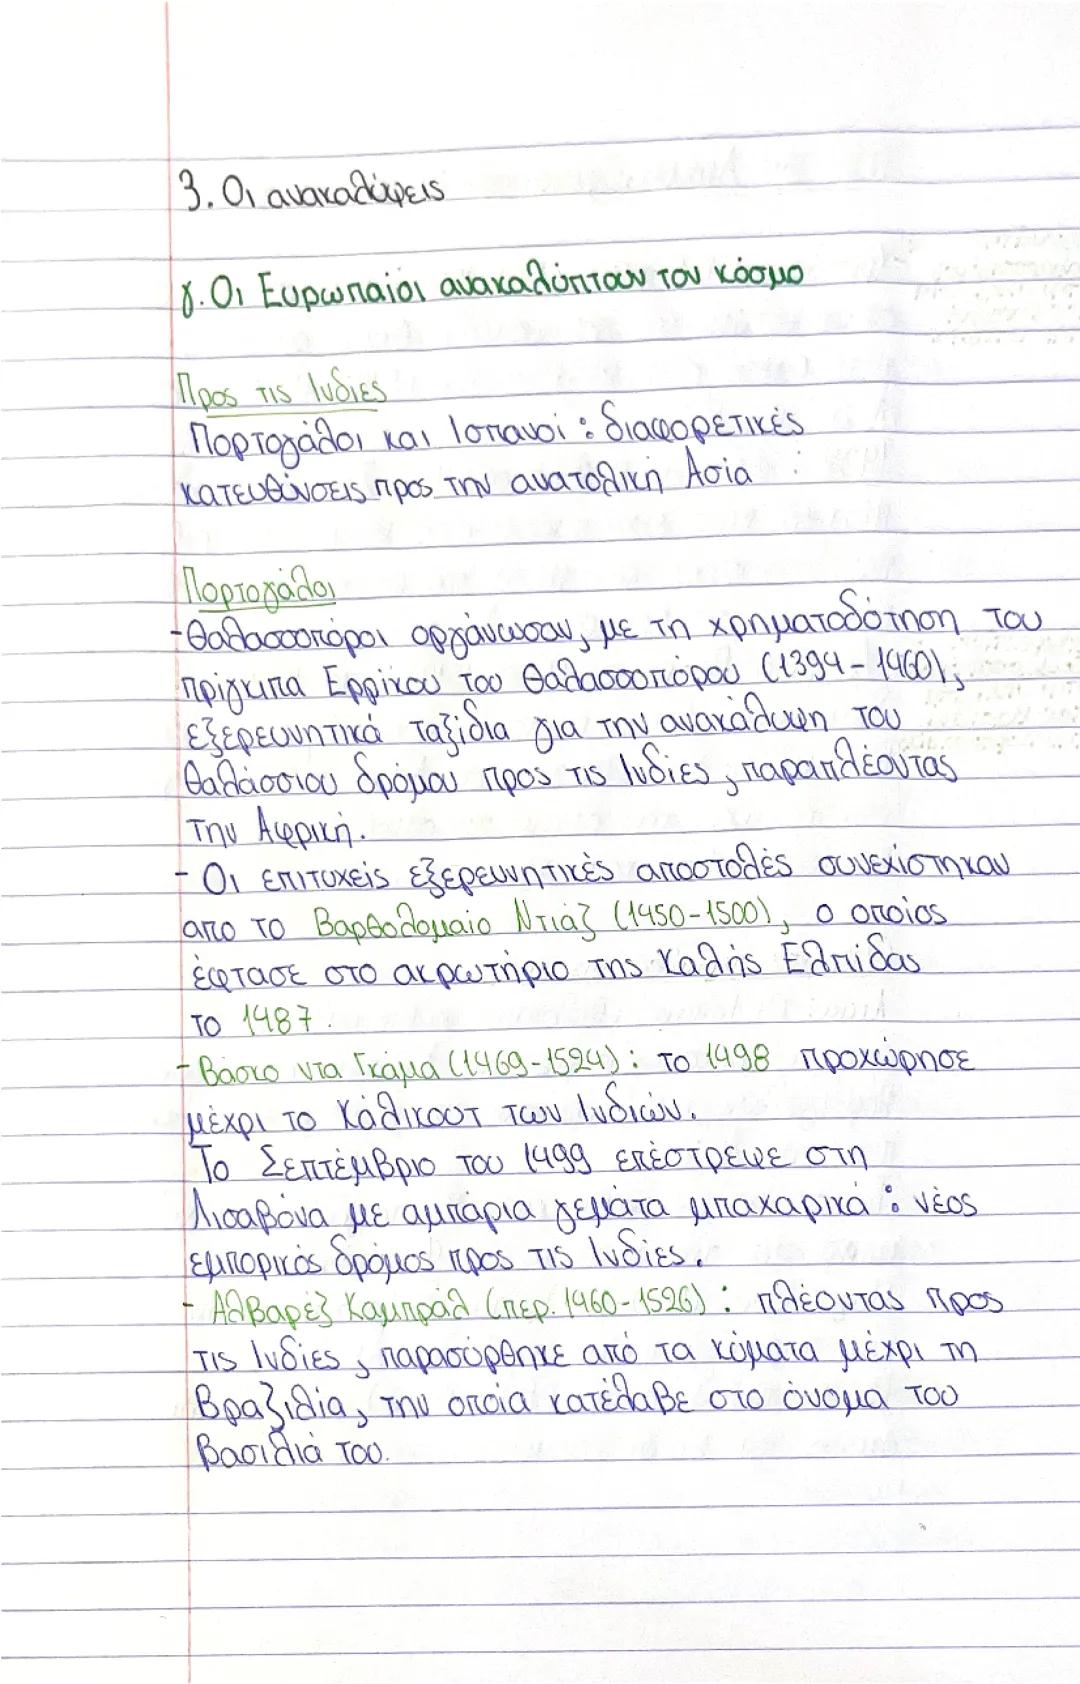 3. Οι ανακαλύψεις
γ. Οι Ευρωπαίοι ανακαλύπτουν τον κόσμο
Προς τις Ινδίες
Πορτογάλοι και Ισπανοί : διαφορετικές
κατευθύνσεις προς την ανατολική Ασία
Πορτογάλοι
-Θαλασσοπόροι οργάνωσαν, με τη χρηματοδότηση του
πρίγκιπα Ερρίκου του Θαλασσοπόρου (1394-1460),
εξερευνητικά ταξίδια για την ανακάλυψη του
θαλάσσιου δρόμου προς τις Ινδίες, παραπλέοντας
την Αφρική.
- Οι επιτυχείς εξερευνητικές αποστολές συνεχίστηκαν
απο το Βαρθολομαίο Ντιάζ (1450-1500), ο οποίος
έφτασε στο ακρωτήριο της Καλής Ελπίδας
το 1487.
-Βάσκο ντα Γκάμα (1469-1524): το 1498 προχώρησε
μέχρι το Κάλικουτ των Ινδιών.
Το Σεπτέμβριο του 1499 επέστρεψε στη
Λισαβόνα με αμπάρια γεμάτα μπαχαρικά : νέος
εμπορικός δρόμος προς τις Ινδίες.
- Αλβαρέζ Καμπράλ (περ. 1460-1526): πλέοντας προς
τις Ινδίες, παρασύρθηκε από τα κύματα μέχρι τη
Βραζιλία, την οποία κατέλαβε στο όνομα του
βασιλιά του.